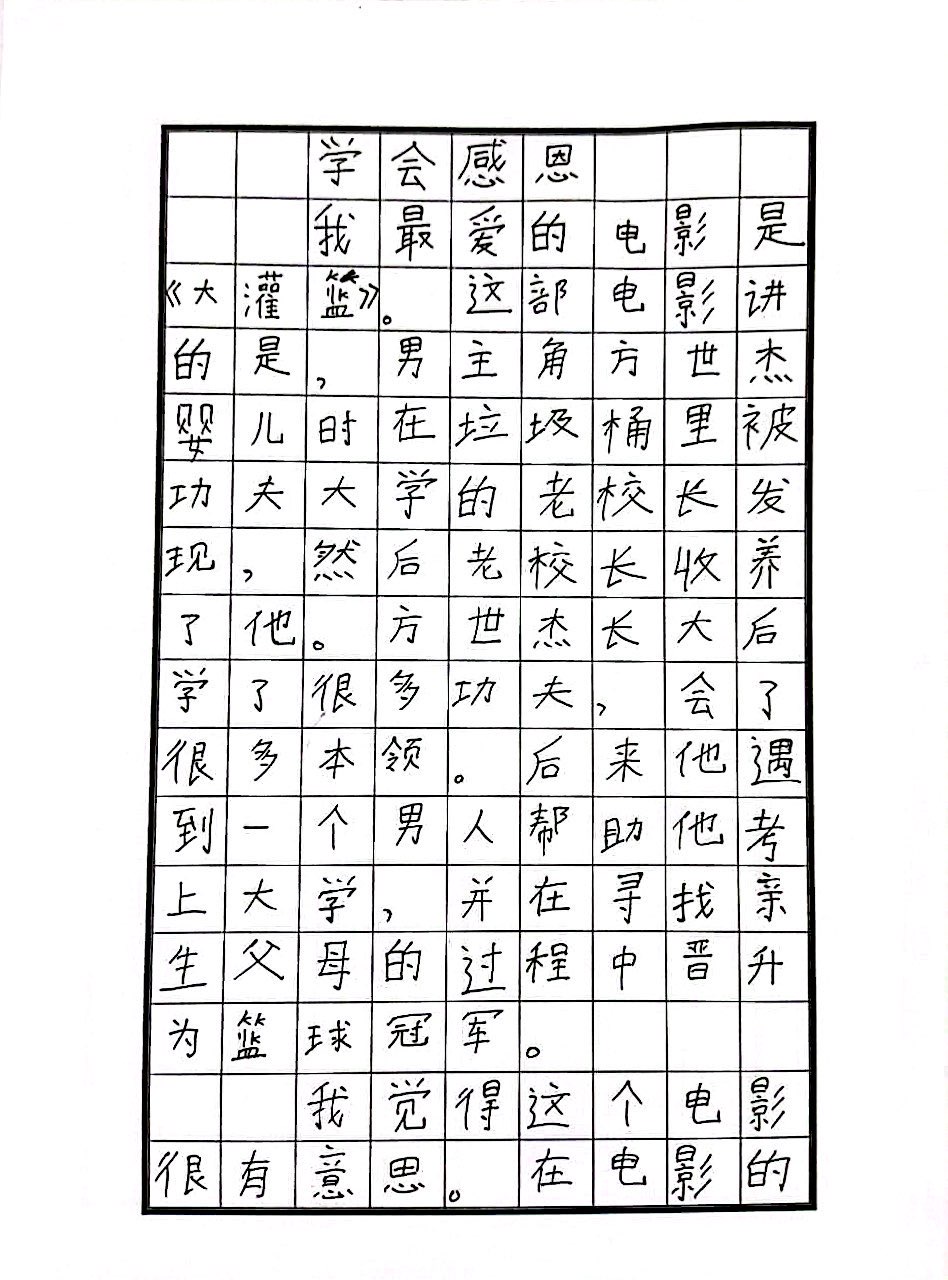 学会感恩
我最爱的电影是
《大灌篮》。这部电影讲
的是，男主角方世杰
婴儿时在垃圾桶里被
功夫大学的老校长发
现，然后老校长收养
了他。方世杰长大后
学了很多功夫，会了
很多本领。后来他遇
到一个男人帮助他考
上大学，并在寻找亲
生父母的过程中晋升
为篮球冠军。
我觉得这个电影
很有意思。在电影的